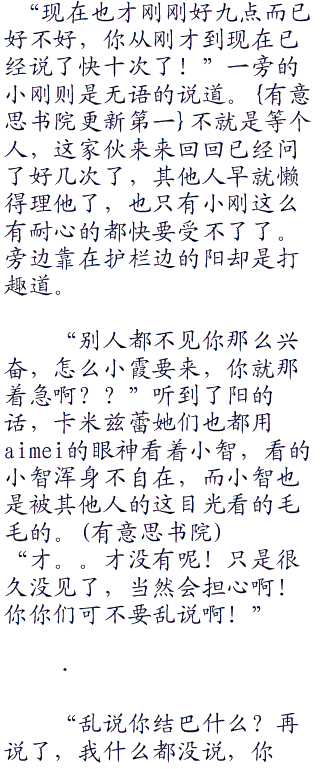 “现在也才刚刚好九点而已
好不好，你从刚才到现在已
经说了快十次了！”一旁的
小刚则是无语的说道。{有意
思书院更新第一}不就是等个
人，这家伙来来回回已经问
了好几次了，其他人早就懒
得理他了，也只有小刚这么
有耐心的都快要受不了了。
旁边靠在护栏边的阳却是打
趣道。
“别人都不见你那么兴
奋，怎么小霞要来，你就那
着急啊？？”听到了阳的
话，卡米兹蕾她们也都用
aimei的眼神看着小智，看的
小智浑身不自在，而小智也
是被其他人的这目光看的毛
毛的。(有意思书院)
“才。。才没有呢！只是很
久没见了，当然会担心啊！
你你们可不要乱说啊！”
.
“乱说你结巴什么？再
说了，我什么都没说，你